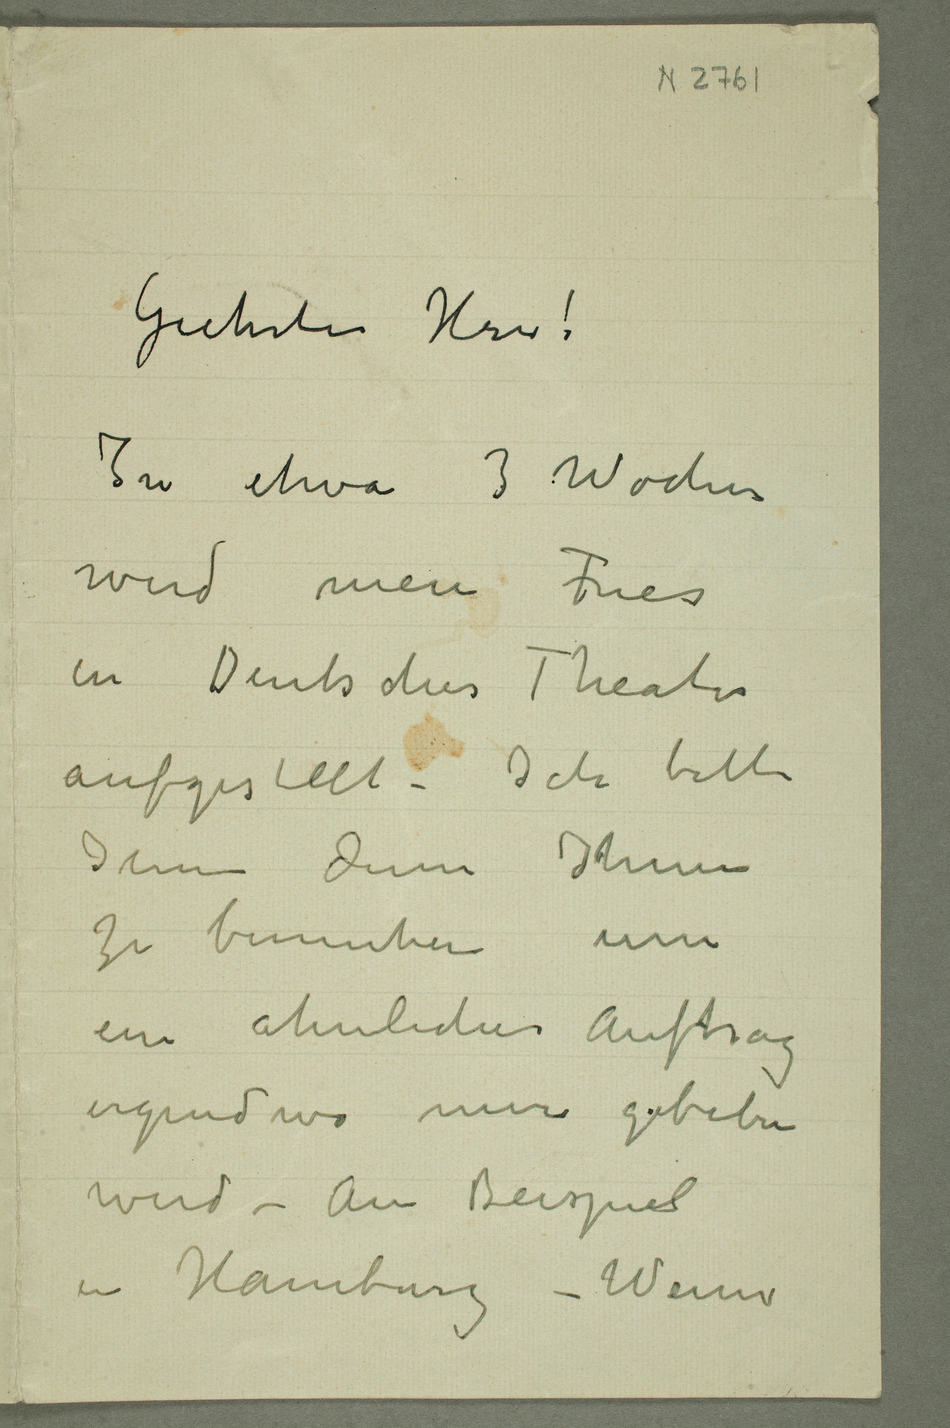 N 2761
Geehrter Herr!
In etwa 3 Wochen
wird mein Fries
in Deutsches Theater
aufgestellt – Ich bitte
Ihnen
zu bemuhen um
ein ahnliches Auftrag
irgendwo mir gebeben
wird – Am Beispiel
in Hamburg – Wenn